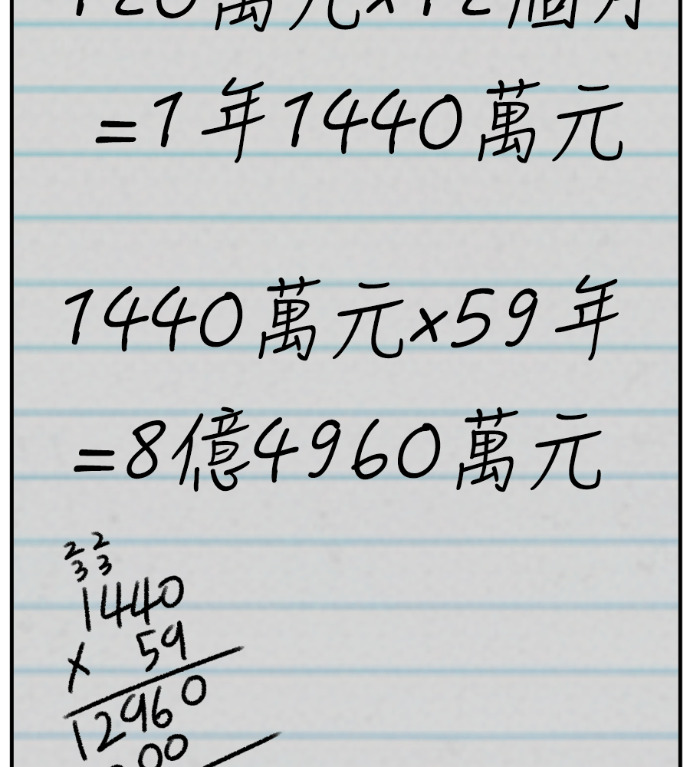 120萬元×12個月
=1年1440萬元
1440萬元×59年
=8億4960萬元
22
33
1440
× 59
12960
00